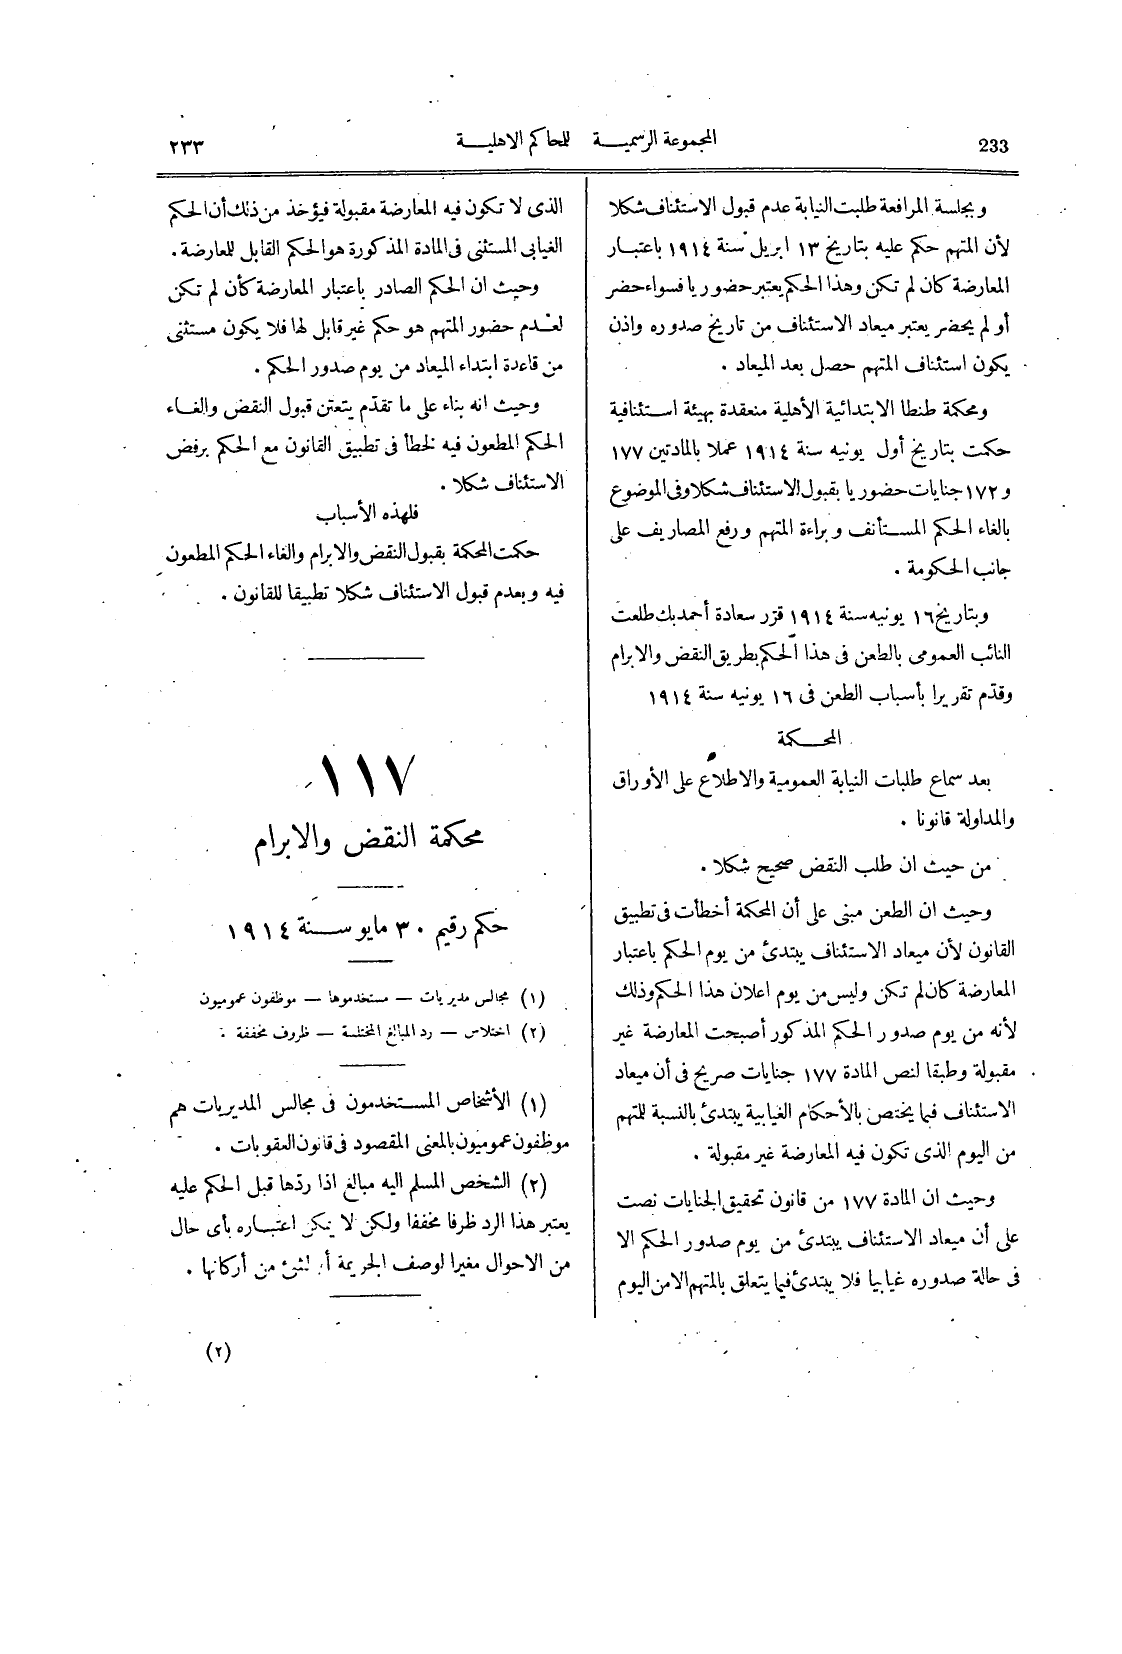 233 المجموعة الرسمية للمحاكم الاهلية ٢٣٣
وبجلسة المرافعة طلبت النيابة عدم قبول الاستئناف شكلا
لأن المتهم حكم عليه بتاريخ ١٣ ابريل سنة ١٩١٤ باعتبار
المعارضة كان لم تكن وهذا الحكم يعتبر حضوريا فسواء حضر
أو لم يحضر يعتبر ميعاد الاستئناف من تاريخ صدوره واذن
يكون استئناف المتهم حصل بعد الميعاد .
ومحكمة طنطا الابتدائية الأهلية منعقدة بهيئة استئنافية
حكمت بتاريخ أول يونيه سنة ١٩١٤ عملا بالمادتين ١٧٧
و ١٧٢ جنايات حضوريا بقبول الاستئناف شكلا وفى الموضوع
بالغاء الحكم المستأنف وبراءة المتهم ورفع المصاريف على
جانب الحكومة .
وبتاريخ ١٦ يونيه سنة ١٩١٤ قرّر سعادة أحمد بك طلعت
النائب العمومى بالطعن فى هذا الحكم بطريق النقض والابرام
وقدّم تقريرا بأسباب الطعن فى ١٦ يونيه سنة ١٩١٤
المحكمة
بعد سماع طلبات النيابة العمومية والاطلاع على الأوراق
والمداولة قانونا .
من حيث ان طلب النقض صحيح شكلا .
وحيث ان الطعن مبنى على أن المحكمة أخطأت فى تطبيق
القانون لأن ميعاد الاستئناف يبتدئ من يوم الحكم باعتبار
المعارضة كان لم تكن وليس من يوم اعلان هذا الحكم وذلك
لأنه من يوم صدور الحكم المذكور أصبحت المعارضة غير
مقبولة وطبقا لنص المادة ١٧٧ جنايات صريح فى أن ميعاد
الاستئناف فيما يختص بالأحكام الغيابية يبتدئ بالنسبة للمتهم
من اليوم الذى تكون فيه المعارضة غير مقبولة .
وحيث ان المادة ١٧٧ من قانون تحقيق الجنايات نصت
على أن ميعاد الاستئناف يبتدئ من يوم صدور الحكم الا
فى حالة صدوره غيابيا فلا يبتدئ فيما يتعلق بالمتهم الا من اليوم
الذى لا تكون فيه المعارضة مقبولة فيؤخذ من ذلك أن الحكم
الغيابى المستثنى فى المادة المذكورة هو الحكم القابل للمعارضة .
وحيث ان الحكم الصادر باعتبار المعارضة كأن لم تكن
لعدم حضور المتهم هو حكم غير قابل لها فلا يكون مستثنى
من قاعدة ابتداء الميعاد من يوم صدور الحكم .
وحيث انه بناء على ما تقدّم يتعين قبول النقض والغاء
الحكم المطعون فيه لخطأ فى تطبيق القانون مع الحكم برفض
الاستئناف شكلا .
فلهذه الأسباب
حكمت المحكمة بقبول النقض والابرام والغاء الحكم المطعون
فيه وبعدم قبول الاستئناف شكلا تطبيقا للقانون .
١١٧
محكمة النقض والابرام
حكم رقيم ٣٠ مايو سنة ١٩١٤
(١) مجالس مديريات — مستخدموها — موظفون عموميون
(٢) اختلاس — رد المبالغ المختلسة — ظروف مخففة .
(١) الأشخاص المستخدمون فى مجالس المديريات هم
موظفون عموميون بالمعنى المقصود فى قانون العقوبات .
(٢) الشخص المسلم اليه مبالغ اذا ردّها قبل الحكم عليه
يعتبر هذا الرد ظرفا مخففا ولكن لا يمكن اعتباره بأى حال
من الاحوال مغيرا لوصف الجريمة أو لشئ من أركانها .
(٢)